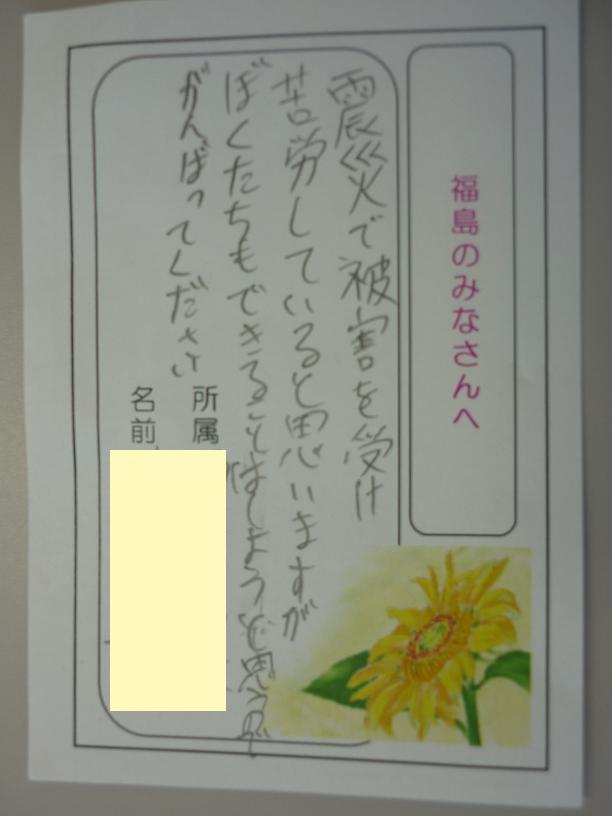 福島のみなさんへ
震災で被害を受け
苦労していると思いますが
ぼくたちもできることはしようと思うので
がんばってください
所属
名前